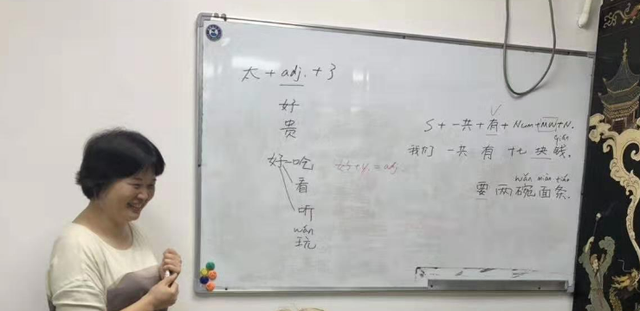 太 + adj. + 了
好
贵
好吃
看
听
wán
玩
好+V = adj.
V
S + 一共 + 有 + Num + MW + N.
qián
我们 一共 有 七 块 钱.
wǎn miàn tiáo
要 两碗 面条.